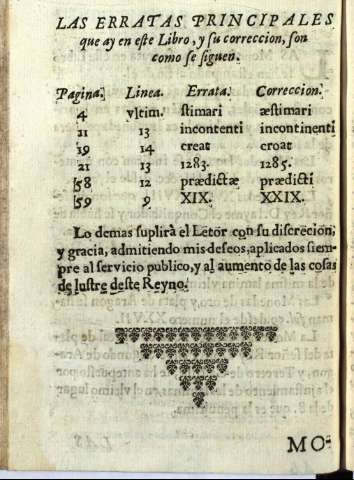 LAS ERRATAS PRINCIPALES
que ay en este Libro, y su correccion, son
como se siguen.
Pagina. Linea. Errata. Correccion.
4 vltim. stimari æstimari
11 13 incontenti incontinenti
19 14 creat croat
21 13 1283. 1285.
58 12 prædictæ prædicti
59 9 XIX. XXIX.
Lo demas suplirà el Letor con su discrecion,
y gracia, admitiendo mis deseos, aplicados siem-
pre al servicio publico, y al aumento de las cosas
de lustre deste Reyno.
MO-